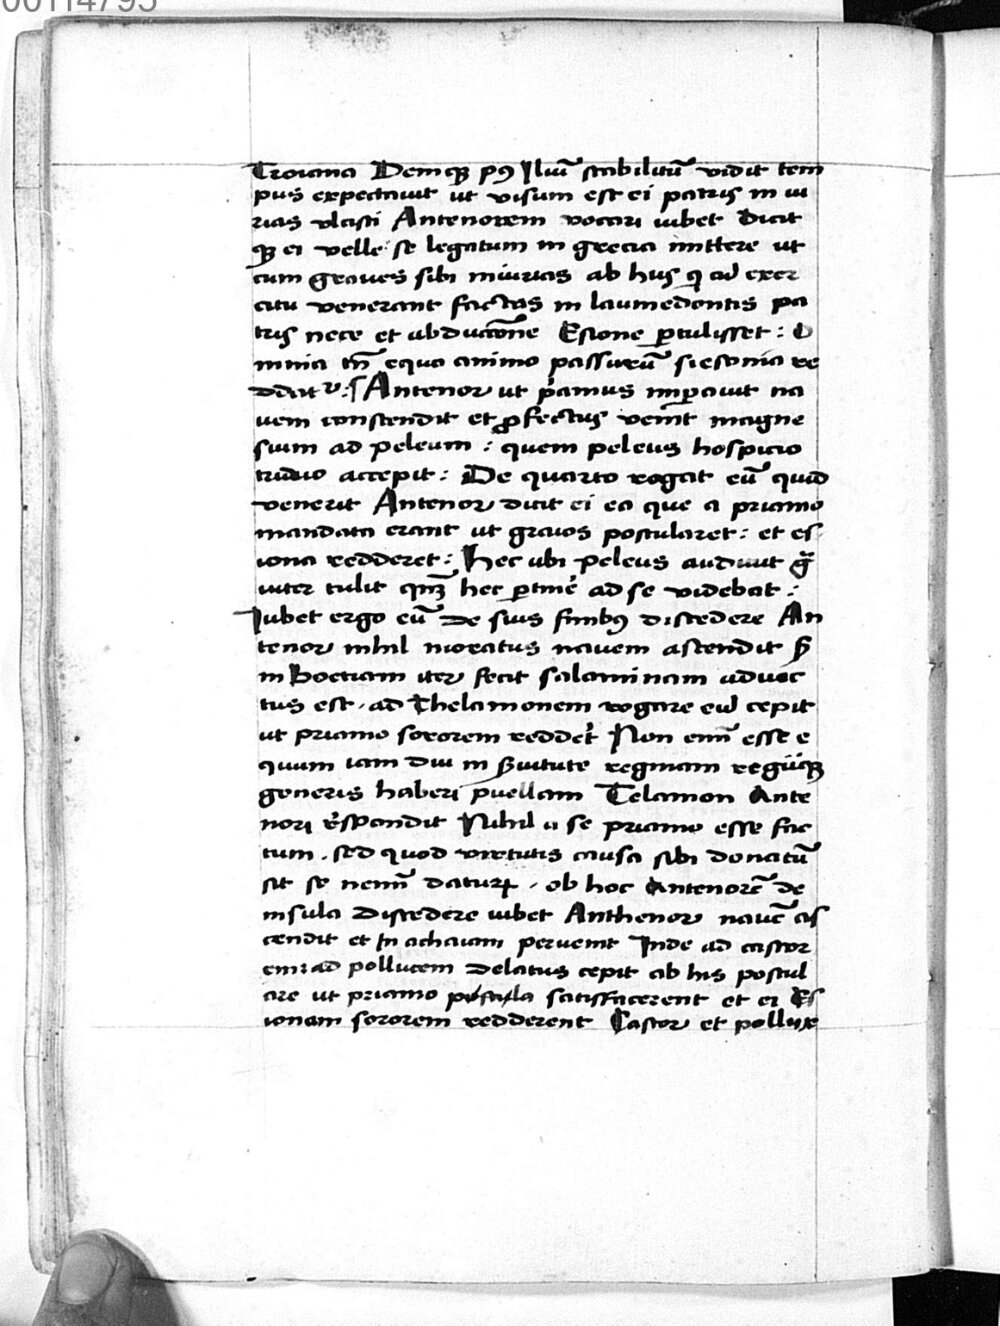 00114795
Troiana Demq̄ꝫ pꝰ Iliū stabilitū vidit tem
pus expectauit ut visum est ei patris in iu
rias vlcisti Antenorem vocari iubet Dicit
qꝫ ei velle se legatum in grecia mittere ut
cum graues sibi iniurias ab hus q ad exer
citu venerant factas in laumedontis pa
tris nece et abductōne Esione ꝑtulisset : O
mnia tn̄ equo animo passurū si esonia re
ddit᷑ : Antenor ut p̓amus imꝑauit na
uem conscendit et ꝓfectus venit magne
sium ad peleum : quem peleus hospicio
triduo accepit : De quarto rogat eū quid
venerit Antenor dicit ei ea que a priamo
mandata erant ut graios postularet : et es
iona redderet : Hec ubi peleus audiuit gͣ
uiter tulit qm̄ hec ꝑtine᷑ ad se videbat :
Iubet ergo eū de suis finibꝰ discedere An
tenor nihil moratus nauem ascendit ẜ
in Boetiam iter fecit salaminam aduec
tus est . ad Thelamonem rogare eū cepit
ut priamo sororem redde᷑t Non enī esse e
quum iam diu in ẜuitute reginam regiiqꝫ
generis haberi puellam Telamon Ante
nori r̓spondit Nihil a se priamo esse fac
tum . sed quod virtutis causa sibi donatū
sit se nemī daturꝝ . ob hoc Antenorē de
insula discedere iubet Anthenor nauē as
cendit et In achaiam peruenit Inde ad castor
em : ad pollucem delatus cepit ab his postul
are ut priamo postula satisfacerent et ei Es
ionam sororem redderent Castor et pollux